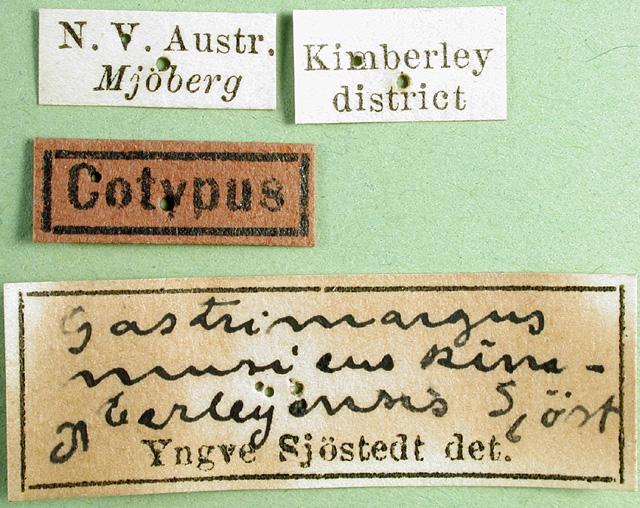 N. V. Austr.
Mjöberg
Kimberley
district
Cotypus
Gastrimargus
musicus kim-
berleyensis Sjöst
Yngve Sjöstedt det.